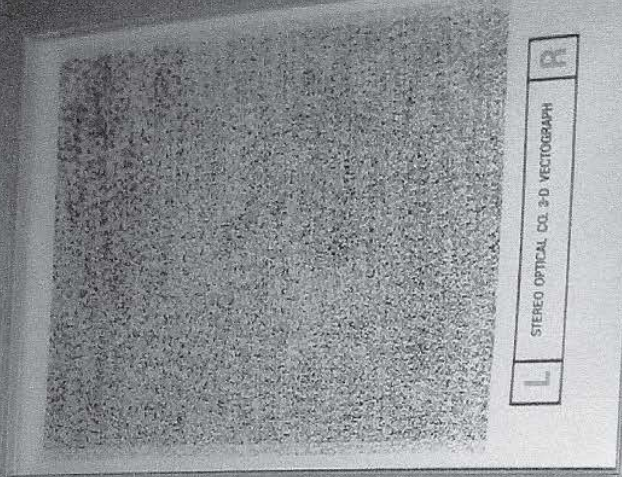 L STEREO OPTICAL CO. 3-D VECTOGRAPH R